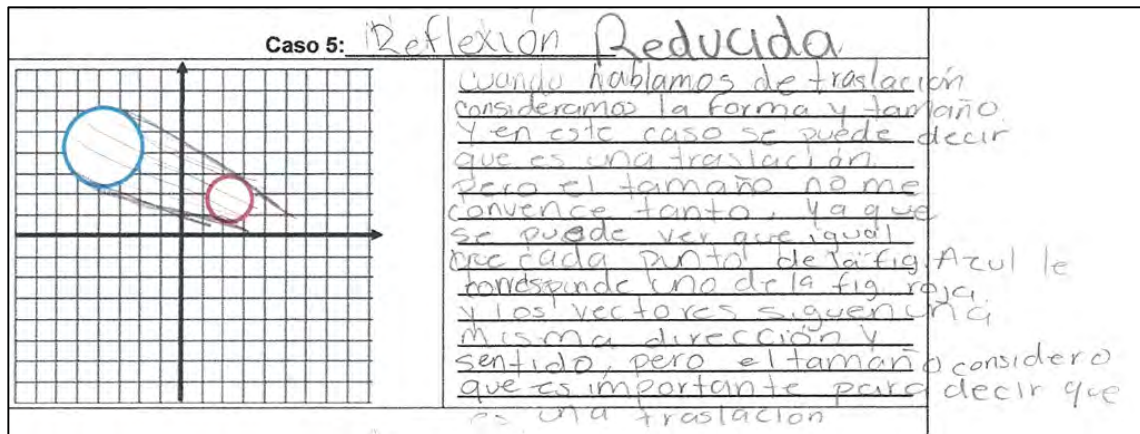 Caso 5: Reflexión Reducida
cuando hablamos de traslación
consideramos la forma y tamaño.
y en este caso se puede decir
que es una traslación
pero el tamaño no me
convence tanto, ya que
se puede ver que igual
que cada punto de la fig. Azul le
corresponde uno de la fig. roja
y los vectores siguen una
misma dirección y
sentido, pero el tamaño considero
que es importante para decir que
es una traslación